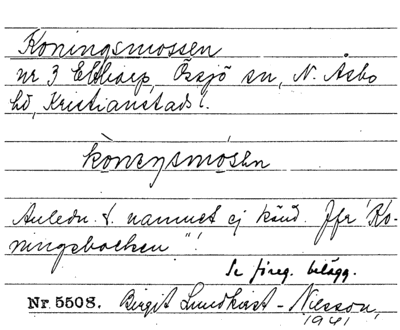 Koningsmossen
nr 3 Ebbarp, Össjö sn, N. Åsbo
hd, Kristianstads l.
kòneŋsmósən
Anledn. t. namnet ej känd. Jfr "Ko-
ningsbacken"!
Se föreg. belägg.
Nr. 5508. Birgit Lundkvist-Nilsson,
1941